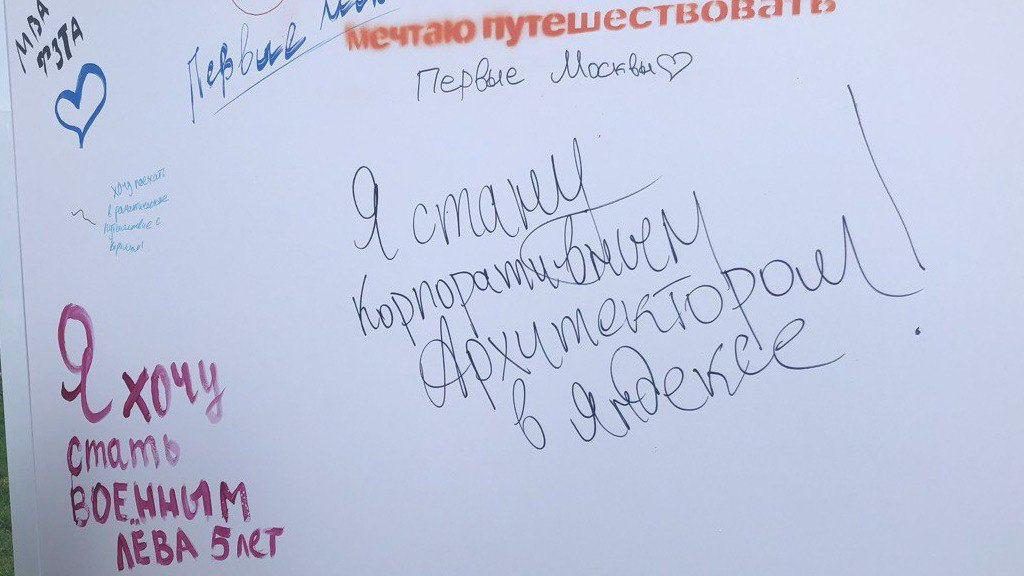 МВА
ФЭТА
Первые
мечтаю путешествовать
Первые Москвы
хочу поехать
в романтическое
путешествие с
Я стану
корпоративным
Архитектором!
в Яндексе
Я хочу
стать
ВОЕННЫМ
ЛЁВА 5 лет